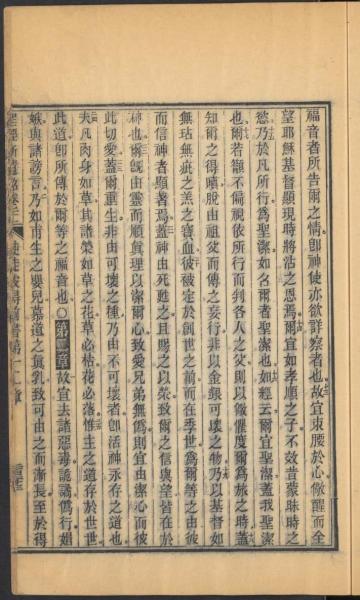 福音者所告爾之情即神使亦欲詳察者也故宜束腰於心儆醒而全
望耶穌基督顯現時將浩之恩焉爾宜如孝順之子不效昔蒙昧時之
慾乃於凡所行爲聖潔如名爾者聖潔也如經云爾宜聖潔蓋我聖潔
也爾若籲不偏視依所行而判各人之父則以儆懼度爾爲旅之時蓋
知爾之得贖脫由祖父而傳之妄行非以金銀可壞之物乃以基督如
無玷無疵之羔之寶血彼被定於創世之前而在季世爲爾等之由彼
而信神者顯著焉蓋神由死甦之且賜之以榮致爾之信與望皆在於
神也爾旣由靈而順眞理以潔爾心致愛兄弟無爲則宜由潔心而彼
此切愛蓋爾重生非由可壞之種乃由不可壞者卽活神永存之道也
夫凡肉身如草其諸榮如草之花草必枯花必落惟主之道存於世世
此道卽所傳於爾等之福音也○第二章故宜去諸惡毒詭譎僞行媢
嫉與諸謗言乃如甫生之嬰兒慕道之眞乳致可由之而漸長至於得